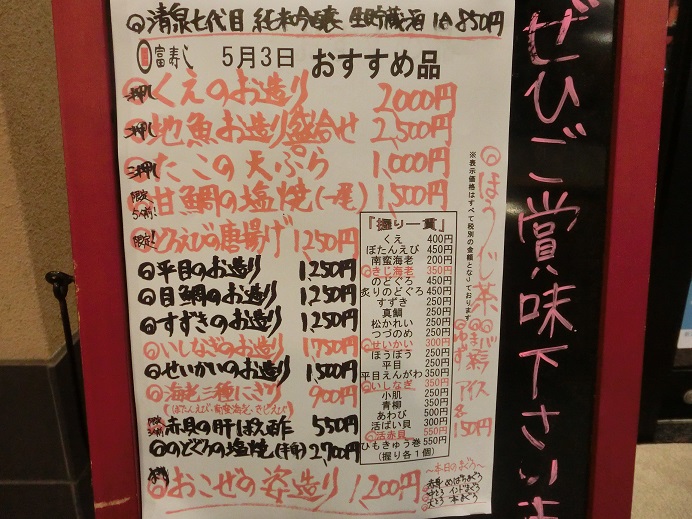 清泉七代目 純米吟醸 生貯蔵酒 1合 850円
富寿し 5月3日 おすすめ品
一押し くえのお造り 2000円
一押し 地魚お造り盛合せ 2,500円
三押し たこの天ぷら 1,000円
限定5名前! 甘鯛の塩焼(一尾) 1,500円
限定! 川えびの唐揚げ 1250円
平目のお造り 1250円
目鯛のお造り 1250円
すずきのお造り 1250円
いしなぎのお造り 1750円
せいかいのお造り 1500円
海老三種にぎり 900円
(ぼたんえび・南蛮海老・きじえび)
赤貝の肝ぽん酢 550円
のどぐろの塩焼(半身) 2700円
おこぜの姿造り 1200円
『握り一貫』
くえ 400円
ぼたんえび 450円
南蛮海老 200円
きじ海老 350円
のどぐろ 450円
炙りのどぐろ 450円
すずき 250円
真鯛 250円
松かれい 250円
つづのめ 250円
せいかい 300円
ほうぼう 250円
平目 250円
平目えんがわ 350円
いしなぎ 350円
小肌 250円
青柳 350円
あわび 500円
活ばい貝 300円
活赤貝 550円
ひもきゅう巻 550円
(握り各1個)
※表示価格はすべて税別の金額となっております
ほうじ茶
ゆず
アイス
各150円
〜本日のまぐろ〜
赤身 めばちまぐろ
中とろ インドまぐろ
大とろ 本まぐろ
ぜひご賞味下さいま